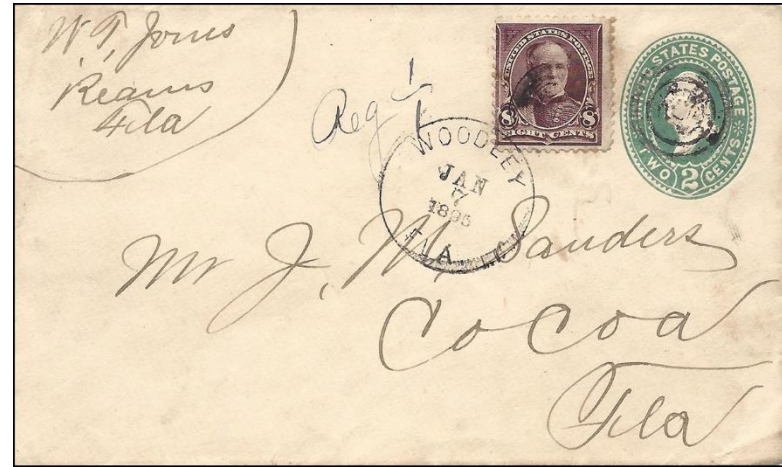 W. T. Jones
Reams
Fla
Reg 1/1
UNITED STATES POSTAGE
8 8
EIGHT CENTS
UNITED STATES POSTAGE
TWO 2 CENTS
WOODLEY
JAN
7
1895
FLA.
Mr J. M. Sanders
Cocoa
Fla